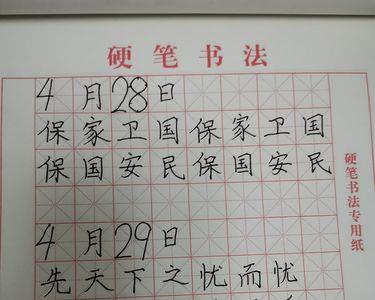 硬笔书法
4月28日
保家卫国保家卫国
保国安民保国安民
4月29日
先天下之忧而忧
硬笔书法专用纸